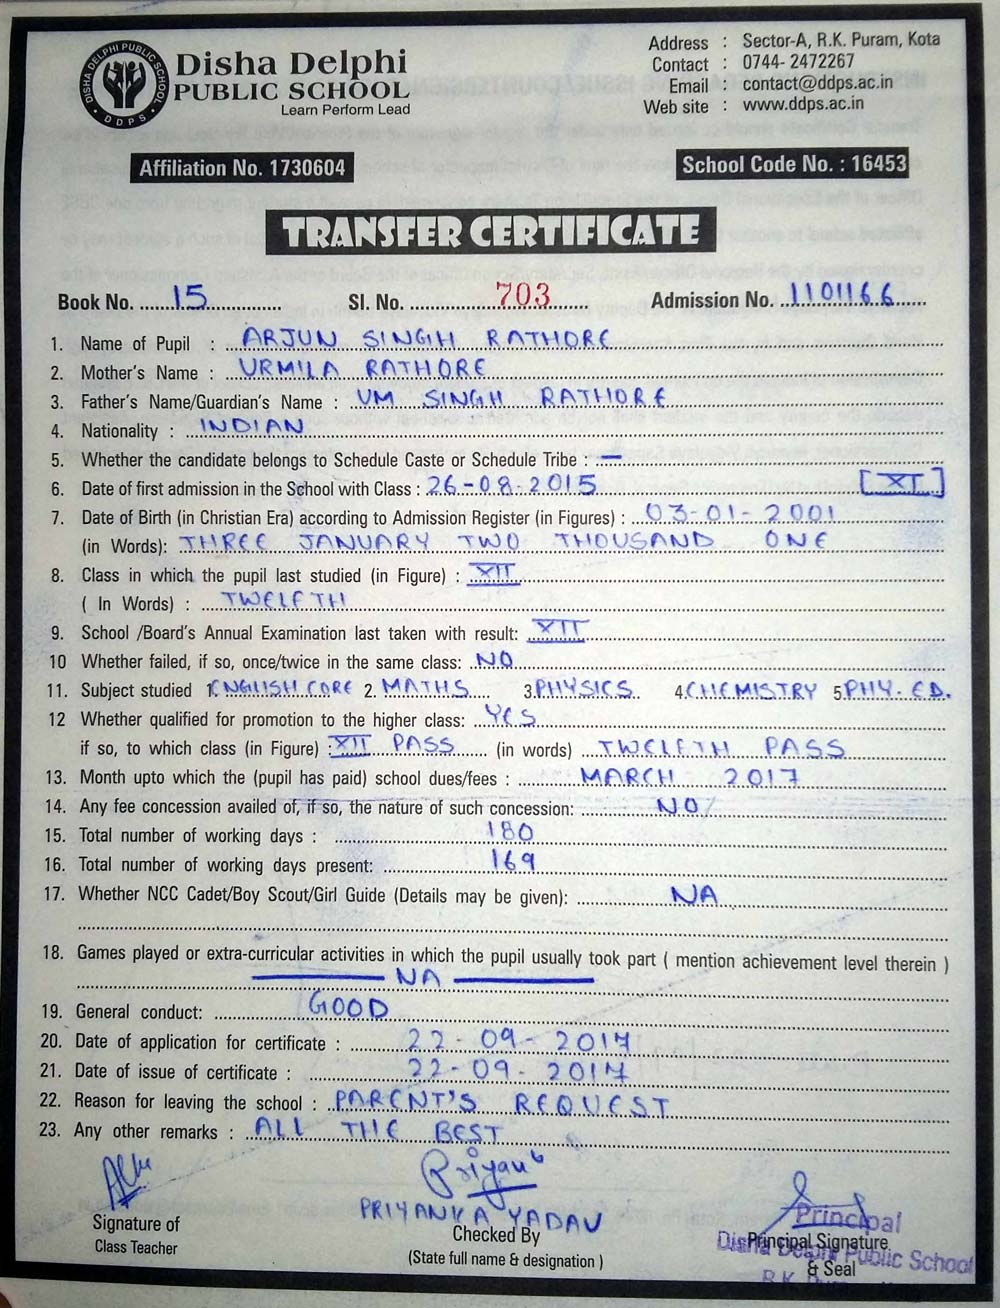 DISHA DELPHI PUBLIC SCHOOL
DDPS
Disha Delphi
PUBLIC SCHOOL
Learn Perform Lead
Address : Sector-A, R.K. Puram, Kota
Contact : 0744- 2472267
Email : contact@ddps.ac.in
Web site : www.ddps.ac.in
Affiliation No. 1730604 School Code No. : 16453
TRANSFER CERTIFICATE
Book No. 15 Sl. No. 703 Admission No. 1101166
1. Name of Pupil : ARJUN SINGH RATHORE
2. Mother's Name : URMILA RATHORE
3. Father's Name/Guardian's Name : UM SINGH RATHORE
4. Nationality : INDIAN
5. Whether the candidate belongs to Schedule Caste or Schedule Tribe : —
6. Date of first admission in the School with Class : 26-08-2015 [XI]
7. Date of Birth (in Christian Era) according to Admission Register (in Figures) : 03-01-2001
(in Words): THREE JANUARY TWO THOUSAND ONE
8. Class in which the pupil last studied (in Figure) : XII
( In Words) : TWELFTH
9. School /Board's Annual Examination last taken with result: XII
10 Whether failed, if so, once/twice in the same class: NO
11. Subject studied 1. ENGLISH CORE 2. MATHS 3. PHYSICS 4. CHEMISTRY 5. PHY. ED.
12 Whether qualified for promotion to the higher class: YES
if so, to which class (in Figure) : XII PASS (in words) TWELFTH PASS
13. Month upto which the (pupil has paid) school dues/fees : MARCH 2017
14. Any fee concession availed of, if so, the nature of such concession: NO
15. Total number of working days : 180
16. Total number of working days present: 169
17. Whether NCC Cadet/Boy Scout/Girl Guide (Details may be given): NA
18. Games played or extra-curricular activities in which the pupil usually took part ( mention achievement level therein )
— NA —
19. General conduct: GOOD
20. Date of application for certificate : 22-09-2017
21. Date of issue of certificate : 22-09-2017
22. Reason for leaving the school : PARENT'S REQUEST
23. Any other remarks : ALL THE BEST
PRIYANKA YADAV
Signature of
Class Teacher
Checked By
(State full name & designation )
Principal
Principal Signature
Disha Delphi Public School
& Seal